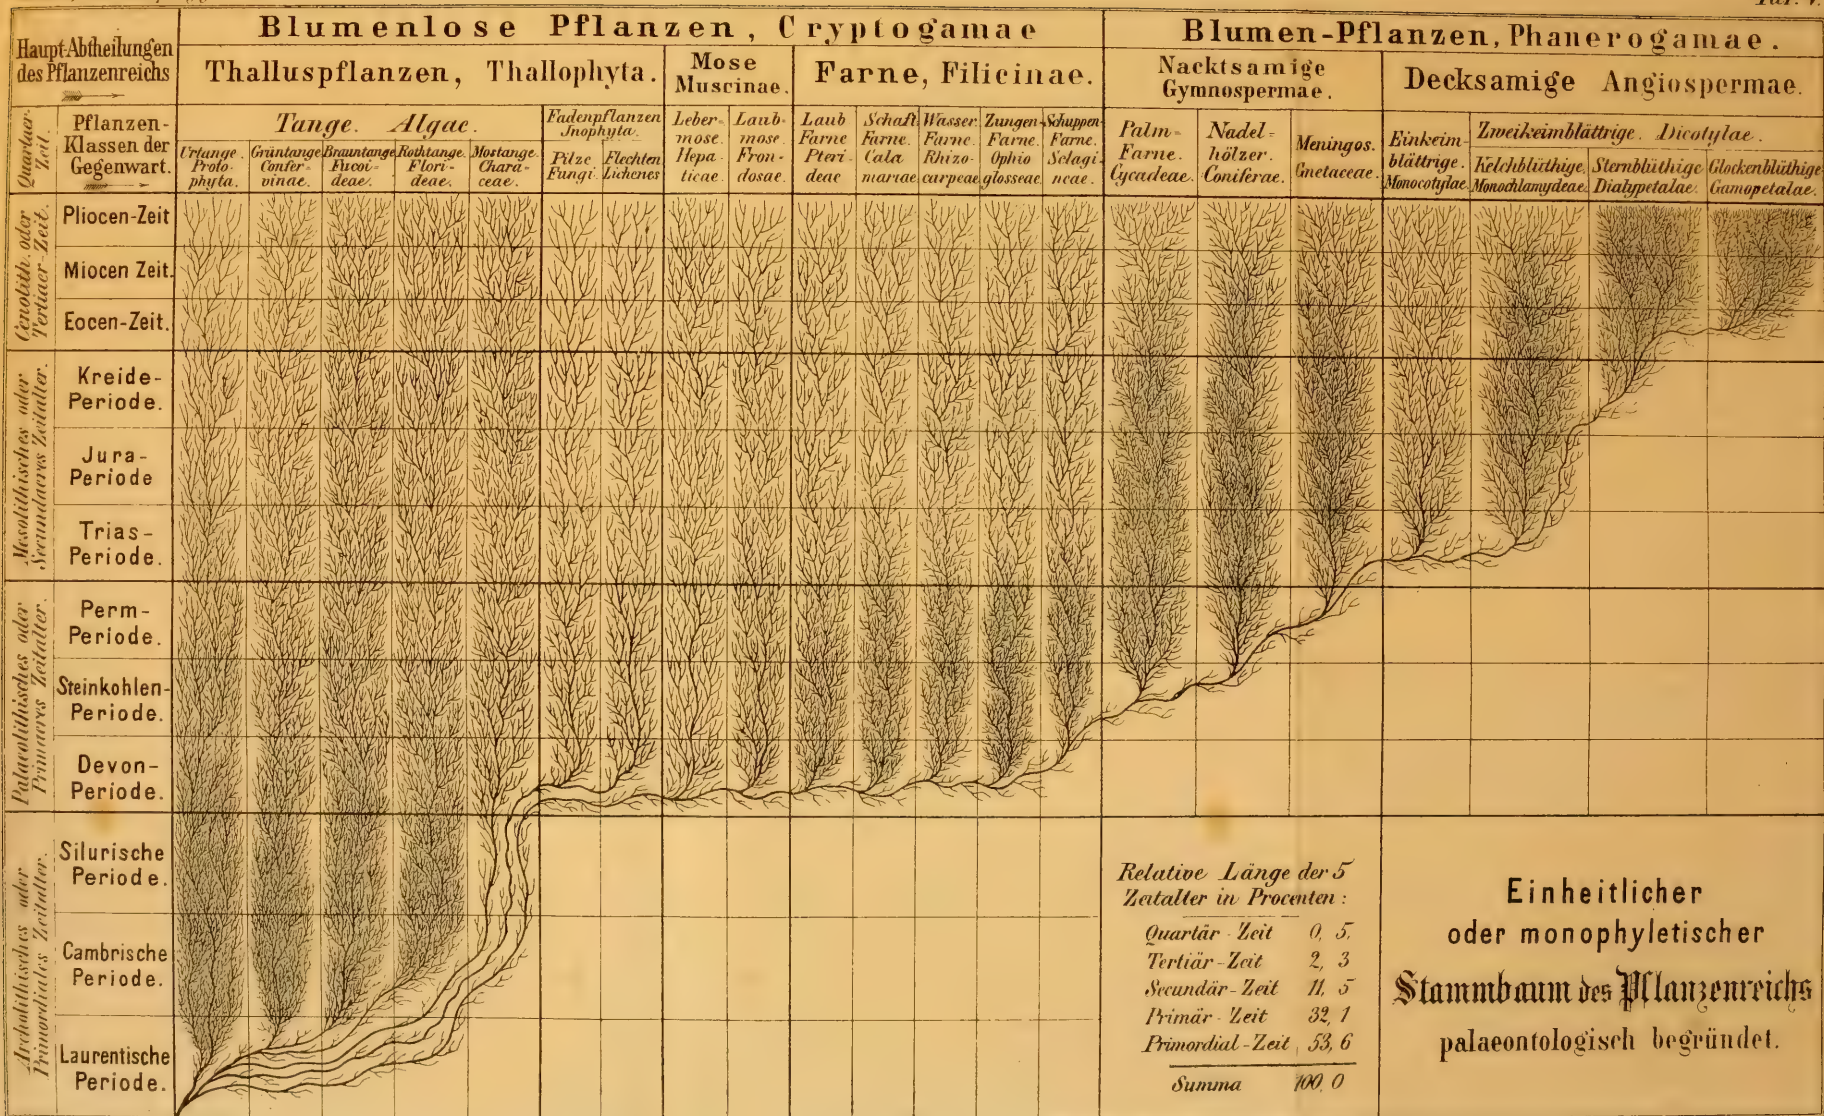 Taf. V.
Haupt-Abtheilungen
des Pflanzenreichs
Blumenlose Pflanzen, Cryptogamae
Blumen-Pflanzen, Phanerogamae.
Thalluspflanzen, Thallophyta.
Mose
Muscinae.
Farne, Filicinae.
Nacktsamige
Gymnospermae.
Decksamige Angiospermae.
Quartaer-
Zeit.
Pflanzen-
Klassen der
Gegenwart.
Tange. Algae.
Urtange.
Proto-
phyta.
Grüntange
Confer-
vinae.
Brauntange
Fucoi-
deae.
Rothtange
Flori-
deae.
Mostange
Chara-
ceae.
Fadenpflanzen
Inophyta.
Pilze
Fungi.
Flechten
Lichenes
Leber-
mose.
Hepa-
ticae.
Laub-
mose
Fron-
dosae.
Laub
Farne
Pteri-
deae
Schaft
Farne.
Cala
mariae
Wasser
Farne.
Rhizo-
carpeae
Zungen-
Farne.
Ophio
glosseae.
Schuppen-
Farne.
Selagi-
neae.
Palm-
Farne.
Cycadeae.
Nadel-
hölzer.
Coniferae.
Meningos.
Gnetaceae.
Einkeim-
blättrige.
Monocotylae.
Zweikeimblättrige. Dicotylae.
Kelchblüthige.
Monochlamydeae.
Sternblüthige
Dialypetalae.
Glockenblüthige
Gamopetalae.
Cenolith. oder
Tertiaer-Zeit.
Pliocen-Zeit
Miocen Zeit.
Eocen-Zeit.
Mesolithisches oder
Secundaeres Zeitalter.
Kreide-
Periode.
Jura-
Periode
Trias-
Periode.
Palaeolithisches oder
Primaeres Zeitalter.
Perm-
Periode.
Steinkohlen-
Periode.
Devon-
Periode.
Archolithisches oder
Primordiales Zeitalter.
Silurische
Periode.
Cambrische
Periode.
Laurentische
Periode.
Relative Länge der 5
Zeitalter in Procenten:
Quartär-Zeit 0, 5.
Tertiär-Zeit 2, 3
Secundär-Zeit 11, 5
Primär-Zeit 32, 1
Primordial-Zeit 53, 6
Summa 100, 0
Einheitlicher
oder monophyletischer
Stammbaum des Pflanzenreichs
palaeontologisch begründet.